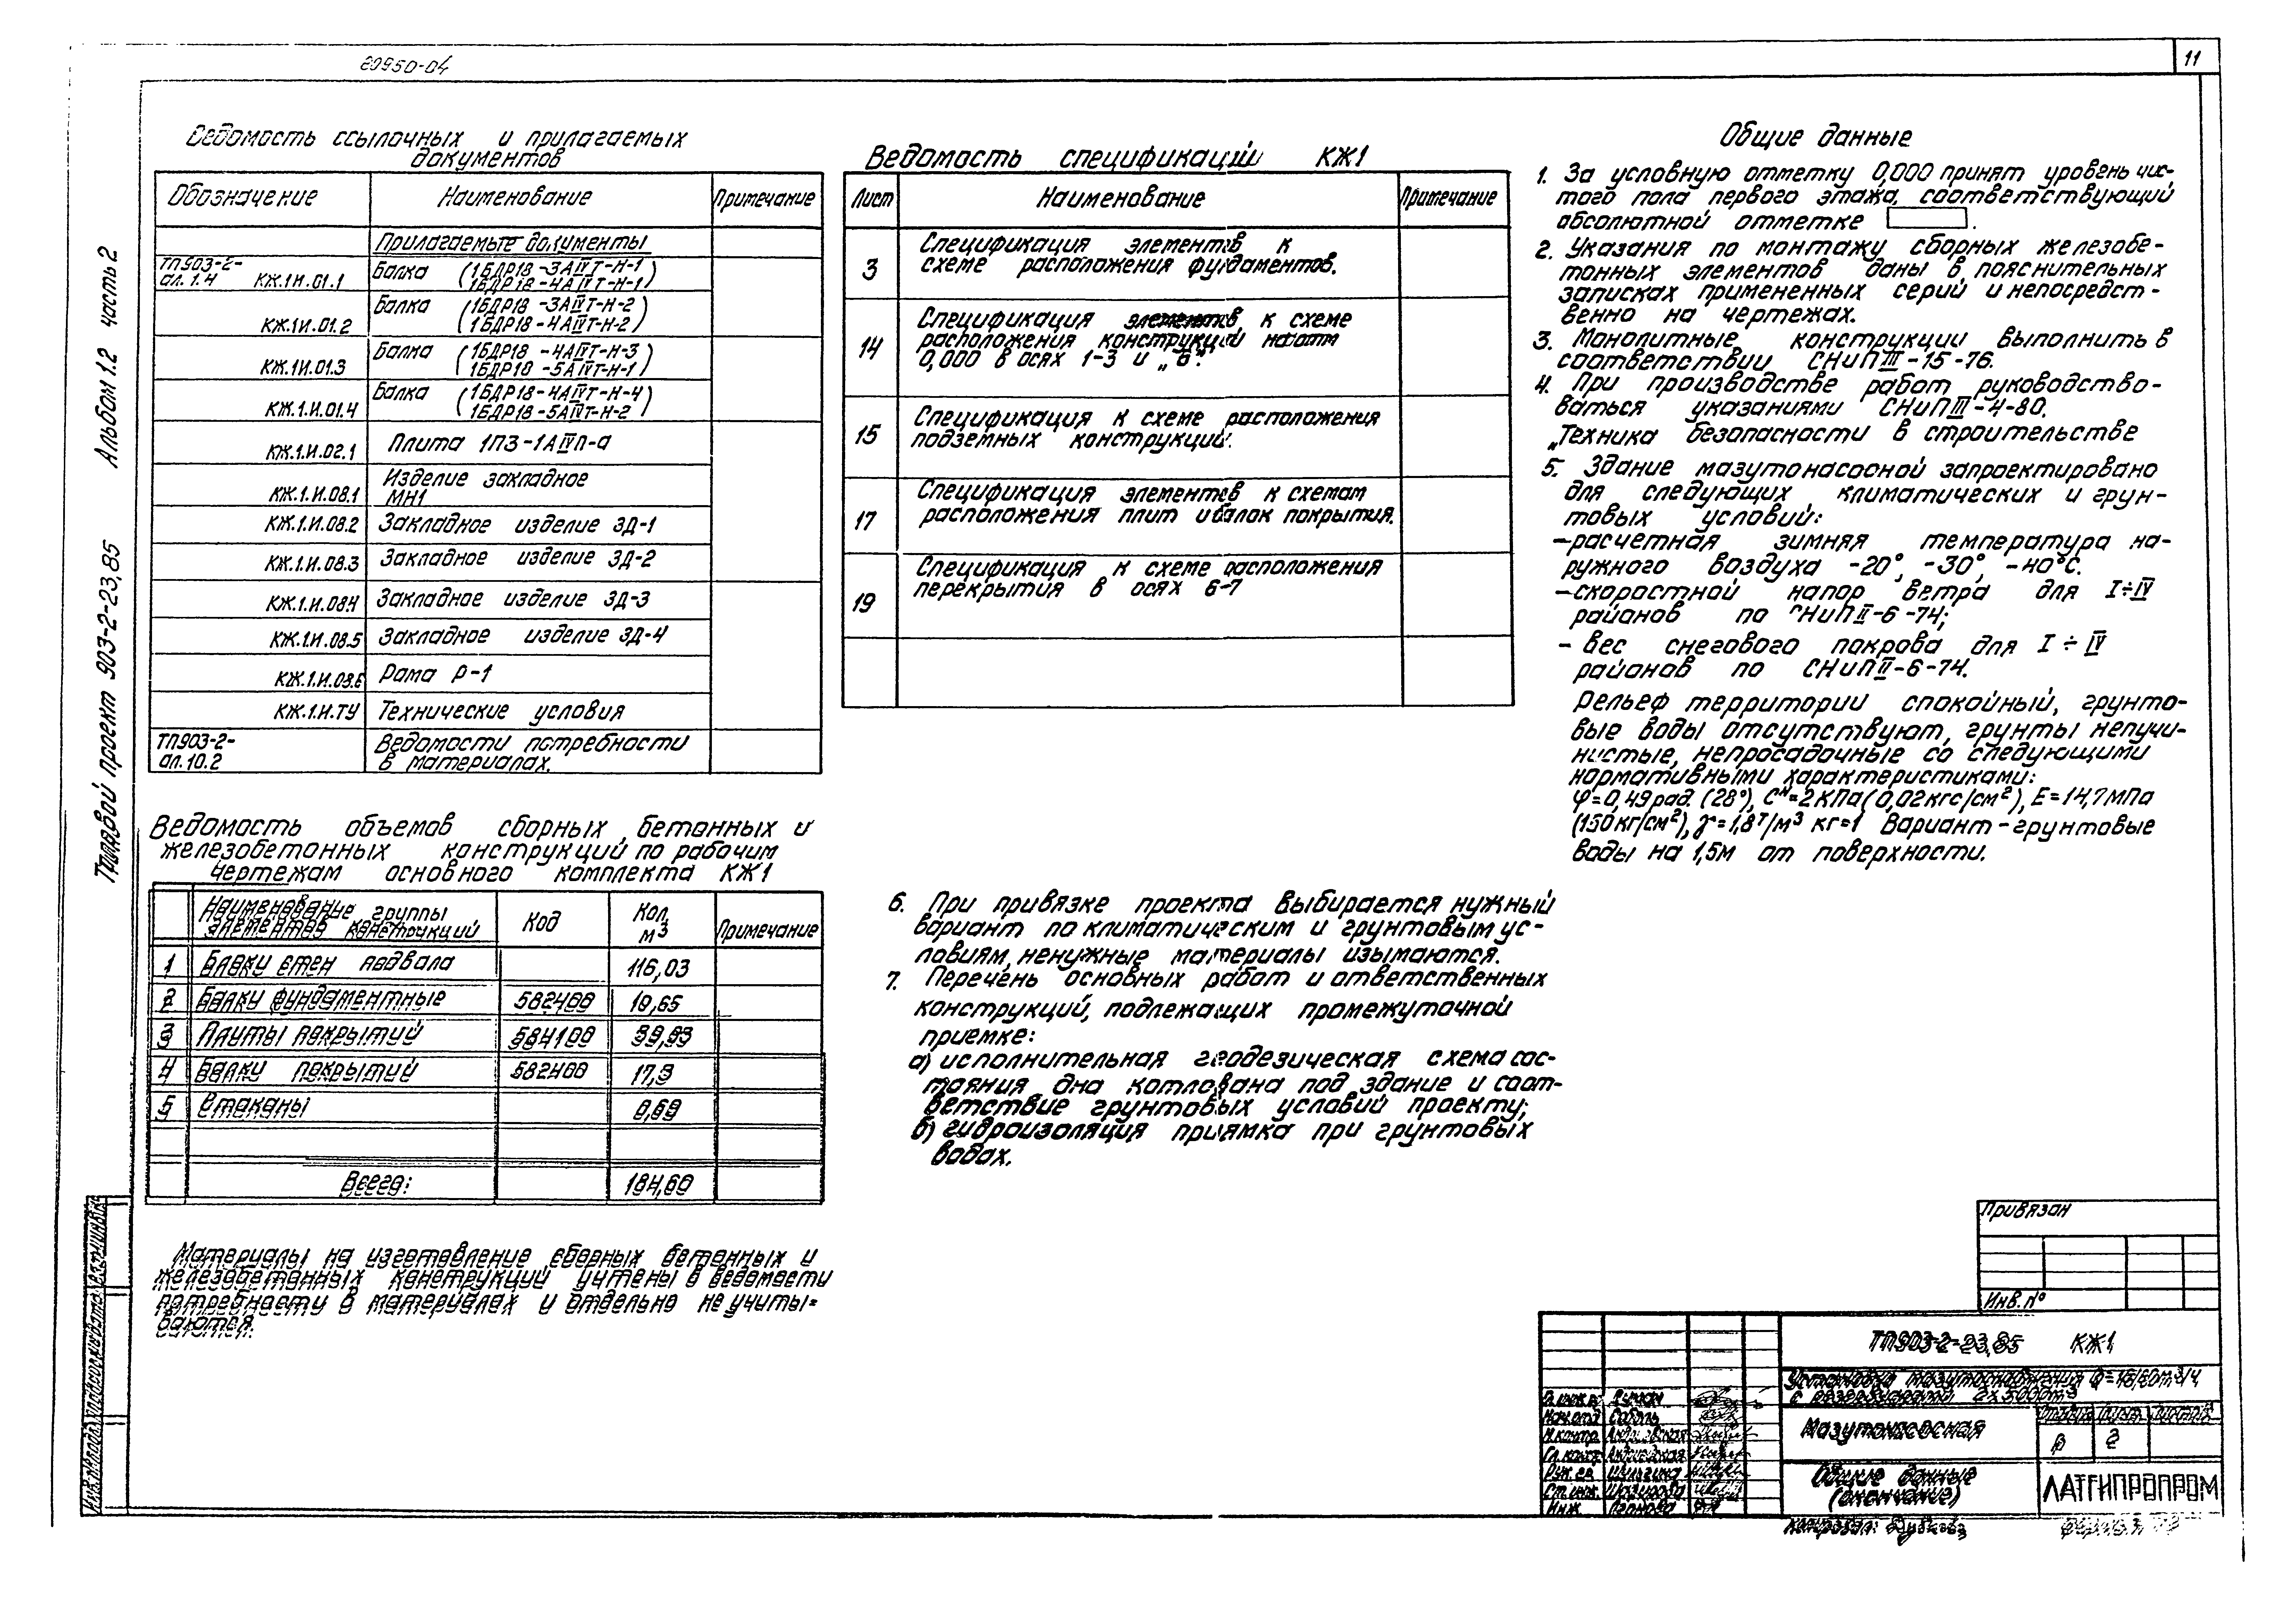 20950-04
11
Типовой проект 903-2-23,85 Альбом 1.2 часть 2
Ведомость ссылочных и прилагаемых
документов
Обозначение Наименование Примечание
Прилагаемые документы
ТП903-2-
ал. 1.4 КЖ.1И.01.1 Балка (1БДР18-3АIVТ-Н-1)
(1БДР18-4АIVТ-Н-1)
КЖ.1И.01.2 Балка (1БДР18-3АIVТ-Н-2)
(1БДР18-4АIVТ-Н-2)
КЖ.1И.01.3 Балка (1БДР18-4АIVТ-Н-3)
(1БДР18-5АIVТ-Н-1)
КЖ.1.И.01.4 Балка (1БДР18-4АIVТ-Н-4)
(1БДР18-5АIVТ-Н-2)
КЖ.1.И.02.1 Плита 1ПЗ-1АIVП-а
КЖ.1.И.08.1 Изделие закладное
МН1
КЖ.1.И.08.2 Закладное изделие ЗД-1
КЖ.1.И.08.3 Закладное изделие ЗД-2
КЖ.1.И.08.4 Закладное изделие ЗД-3
КЖ.1.И.08.5 Закладное изделие ЗД-4
КЖ.1.И.08.6 Рама Р-1
КЖ.1.И.ТУ Технические условия
ТП903-2-
ал.10.2 Ведомости потребности
в материалах.
Ведомость объемов сборных, бетонных и
железобетонных конструкций по рабочим
чертежам основного комплекта КЖ1
Наименование группы
элементов конструкций Код Кол. м3 Примечание
1 Блоки стен подвала 116,03
2 Балки фундаментные 582400 10,65
3 Плиты покрытий 584100 39,93
4 Балки покрытий 582400 17,3
5 Стаканы 0,69
Всего: 184,60
Материалы на изготовление сборных бетонных и
железобетонных конструкций учтены в ведомости
потребности в материалах и отдельно не учиты-
ваются.
Ведомость спецификаций КЖ1
Лист Наименование Примечание
3 Спецификация элементов к
схеме расположения фундаментов.
14 Спецификация элементов к схеме
расположения конструкций на отм
0,000 в осях 1-3 и „б".
15 Спецификация к схеме расположения
подземных конструкций.
17 Спецификация элементов к схемам
расположения плит и балок покрытия.
19 Спецификация к схеме расположения
перекрытия в осях 6-7
6. При привязке проекта выбирается нужный
вариант по климатическим и грунтовым ус-
ловиям, ненужные материалы изымаются.
7. Перечень основных работ и ответственных
конструкций, подлежащих промежуточной
приемке:
а) исполнительная геодезическая схема сос-
тояния дна котлована под здание и соот-
ветствие грунтовых условий проекту;
б) гидроизоляция приямка при грунтовых
водах.
Общие данные
1. За условную отметку 0,000 принят уровень чис-
того пола первого этажа, соответствующий
абсолютной отметке .
2. Указания по монтажу сборных железобе-
тонных элементов даны в пояснительных
записках примененных серий и непосредст-
венно на чертежах.
3. Монолитные конструкции выполнить в
соответствии СНиПIII-15-76.
4. При производстве работ руководство-
ваться указаниями СНиПIII-4-80.
„Техника безопасности в строительстве
5. Здание мазутонасосной запроектировано
для следующих климатических и грун-
товых условий:
-расчетная зимняя температура на-
ружного воздуха -20°, -30°, -40°С.
-скоростной напор ветра для I÷IV
районов по СНиПII-6-74;
- вес снегового покрова для I÷IV
районов по СНиПII-6-74.
Рельеф территории спокойный, грунто-
вые воды отсутствуют, грунты непучи-
нистые, непросадочные со следующими
нормативными характеристиками:
φ=0,49рад. (28°), Сн=2КПа(0,02кгс/см2), Е=14,7МПа
(150кг/см2), γ=1,8т/м3 кг=1 Вариант-грунтовые
воды на 1,5м от поверхности.
Привязан
Инв. №
ТП903-2-23,85 КЖ1
Установка мазутоснабжения
с резервуарами 2х5000м3
Мазутонасосная
Стадия Лист Листов
Р 2
Общие данные
(окончание)
ЛАТГИПРОПРОМ
Нач.отд Соболь
Н.контр.
Рук.гр. Шульгина
Ст.инж.
Инж.
Копировал: